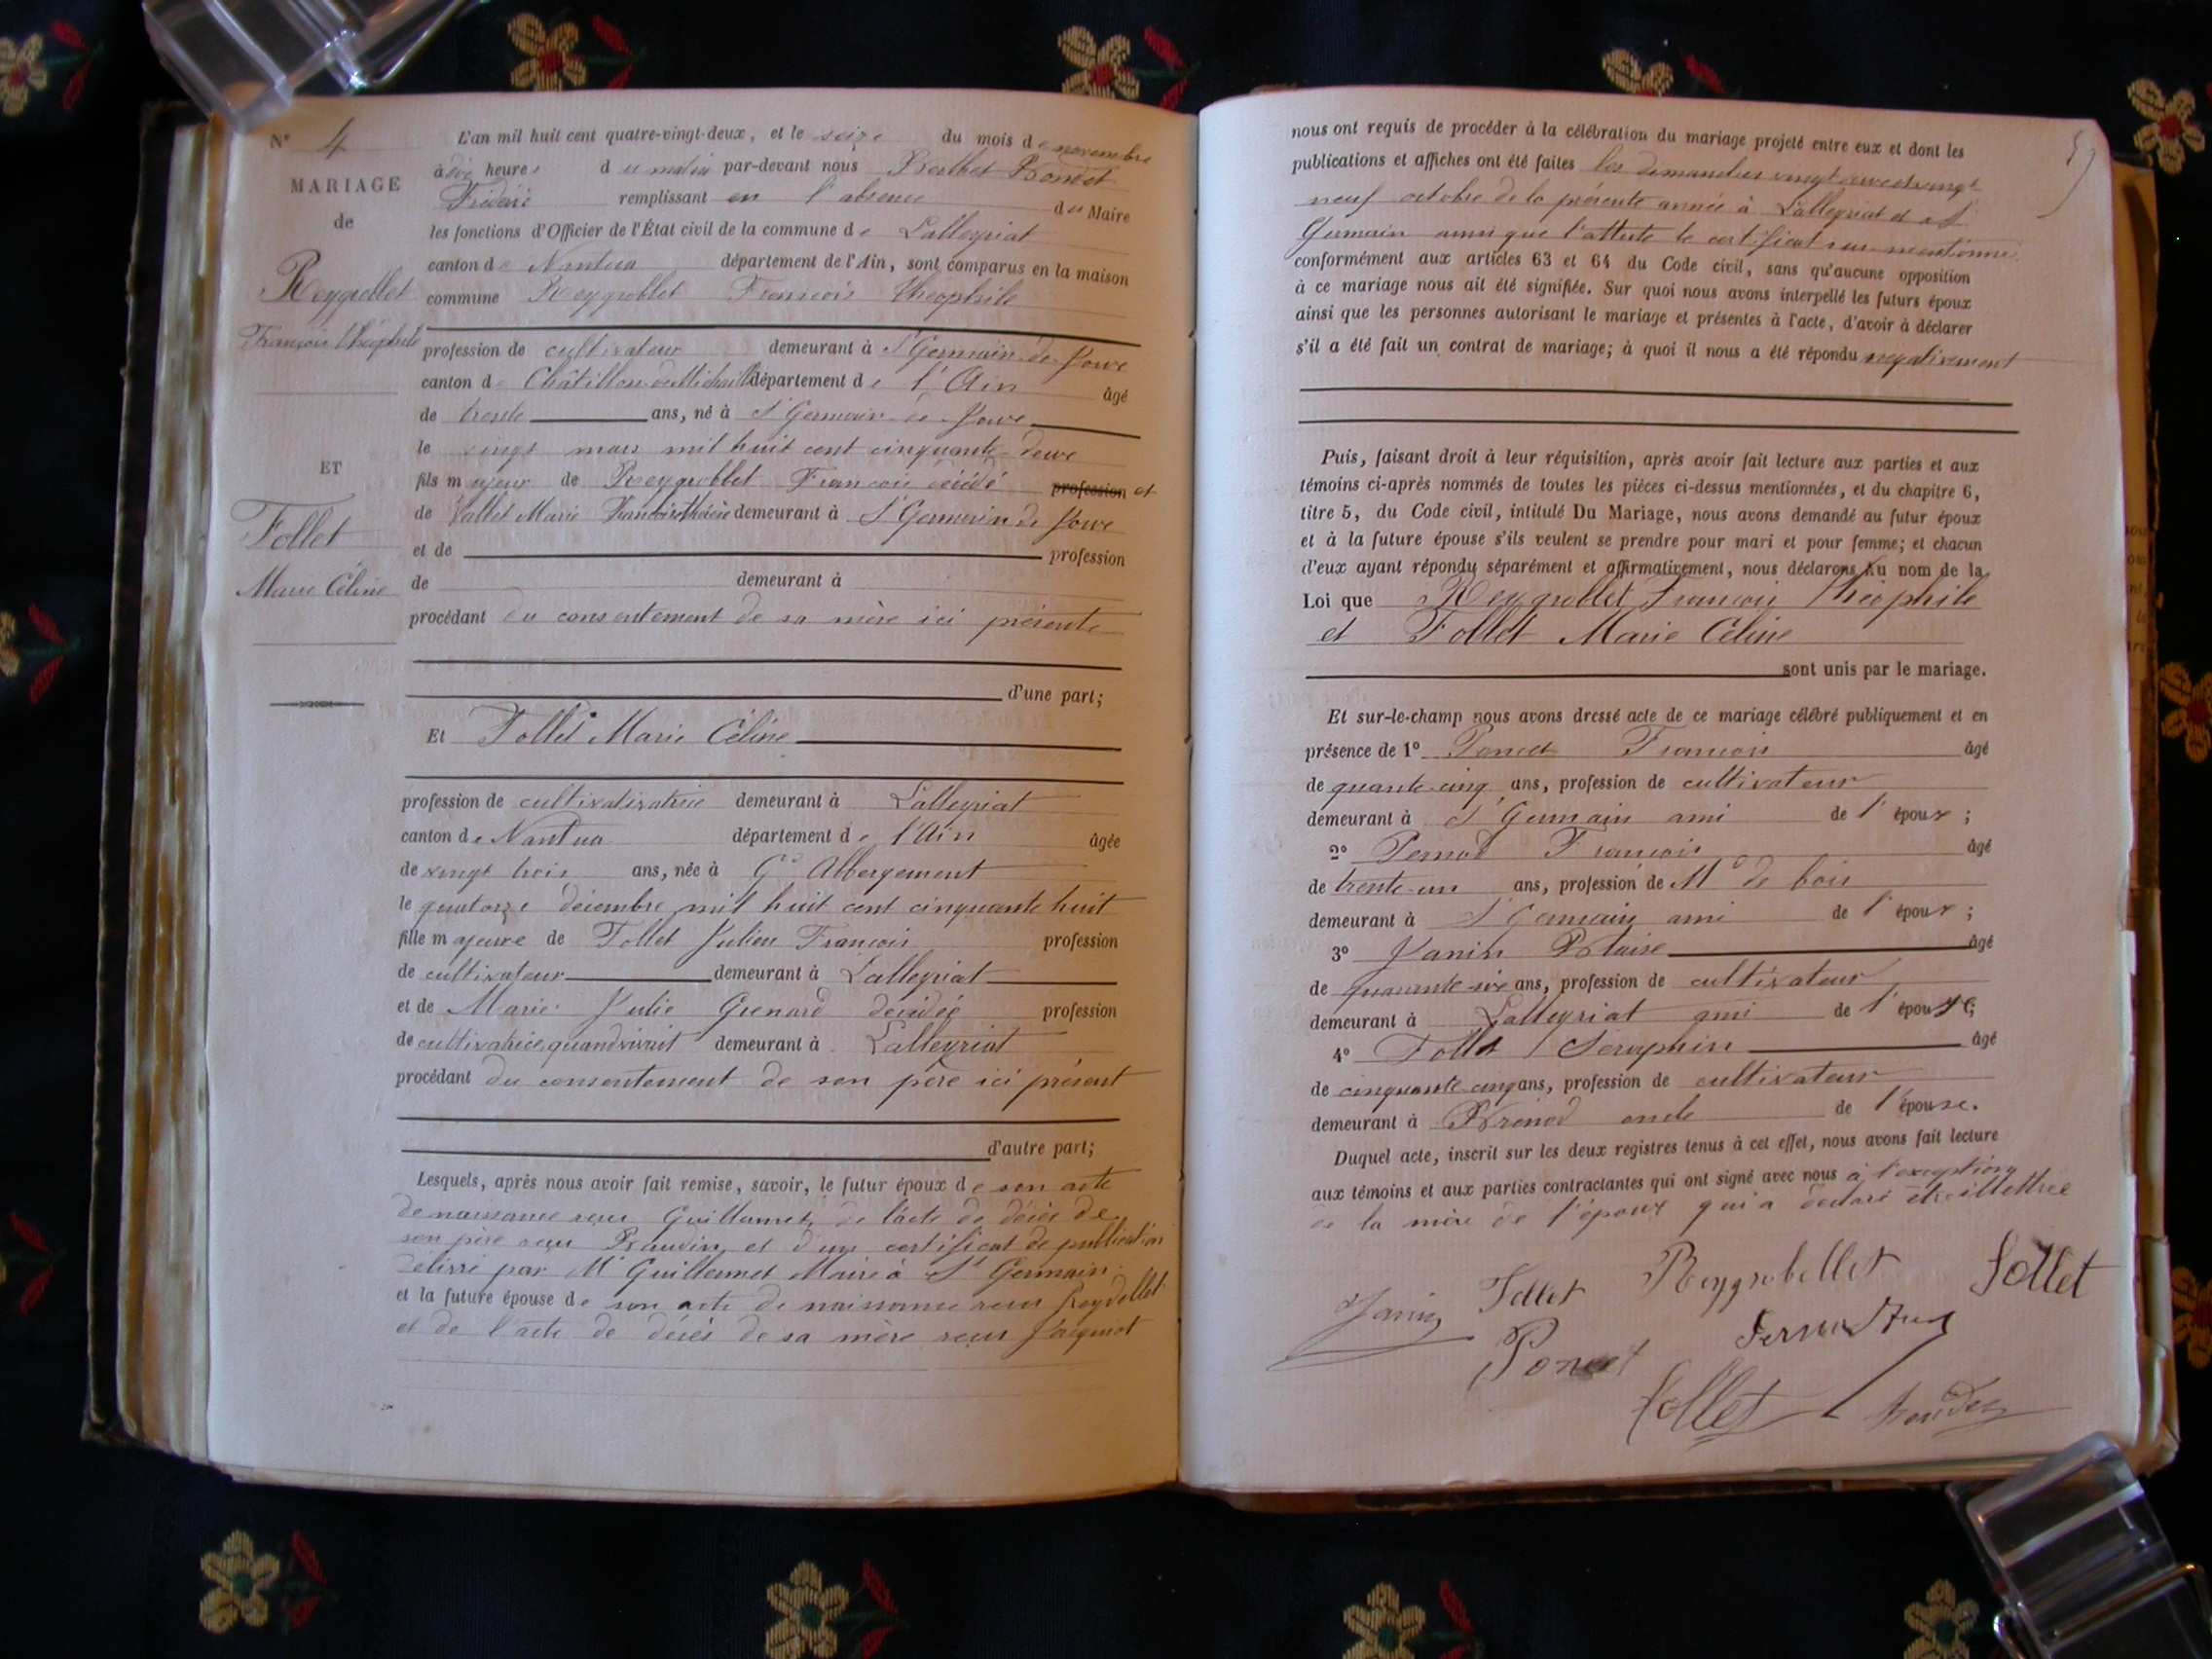 N° 4
MARIAGE
de
Reygrobllet
François Théophile
ET
Follet
Marie Céline
L'an mil huit cent quatre-vingt-deux, et le seize du mois de novembre
à dix heures du matin par-devant nous Berthet Bondet
Frédéric remplissant en l'absence du Maire
les fonctions d'Officier de l'État civil de la commune de Lalleyriat
canton de Nantua département de l'Ain, sont comparus en la maison
commune Reygrobllet François Théophile
profession de cultivateur demeurant à St Germain de Joux
canton de Châtillon de Michaille département de l'Ain âgé
de trente ans, né à St Germain de Joux
le vingt mars mil huit cent cinquante deux
fils majeur de Reygrobllet François décédé profession et
de Vallet Marie Françoise Thérèse demeurant à St Germain de Joux
et de profession
de demeurant à
procédant du consentement de sa mère ici présente
d'une part;
Et Follet Marie Céline
profession de cultivativatrice demeurant à Lalleyriat
canton de Nantua département de l'Ain âgée
de vingt trois ans, née à Gd Abbergement
le quatorze décembre mil huit cent cinquante huit
fille majeure de Follet Julien François profession
de cultivateur demeurant à Lalleyriat
et de Marie Julie Grenard décédée profession
de cultivatrice quand vivait demeurant à Lalleyriat
procédant du consentement de son père ici présent
d'autre part;
Lesquels, après nous avoir fait remise, savoir, le futur époux de son acte
de naissance reçu Guillermet, de l'acte de décès de
son père reçu Baudin et d'un certificat de publication
délivré par Mr Guillermet Maire à St Germain
et la future épouse de son acte de naissance reçu Reydellet
et de l'acte de décès de sa mère reçu Jacquiot
nous ont requis de procéder à la célébration du mariage projeté entre eux et dont les
publications et affiches ont été faites les dimanches vingt deux et vingt
neuf octobre de la présente année à Lalleyriat et à St
Germain ainsi que l'atteste le certificat sus-mentionné
conformément aux articles 63 et 64 du Code civil, sans qu'aucune opposition
à ce mariage nous ait été signifiée. Sur quoi nous avons interpellé les futurs époux
ainsi que les personnes autorisant le mariage et présentes à l'acte, d'avoir à déclarer
s'il a été fait un contrat de mariage; à quoi il nous a été répondu négativement
Puis, faisant droit à leur réquisition, après avoir fait lecture aux parties et aux
témoins ci-après nommés de toutes les pièces ci-dessus mentionnées, et du chapitre 6,
titre 5, du Code civil, intitulé Du Mariage, nous avons demandé au futur époux
et à la future épouse s'ils veulent se prendre pour mari et pour femme; et chacun
d'eux ayant répondu séparément et affirmativement, nous déclarons au nom de la
Loi que Reygrobllet François Théophile
et Follet Marie Céline
sont unis par le mariage.
Et sur-le-champ nous avons dressé acte de ce mariage célébré publiquement et en
présence de 1° Poncet François âgé
de quante-cinq ans, profession de cultivateur
demeurant à St Germain ami de l'époux;
2° Pernod François âgé
de trente-un ans, profession de Md de bois
demeurant à St Germain ami de l'époux;
3° Janin Blaise âgé
de quarante six ans, profession de cultivateur
demeurant à Lalleyriat ami de l'épouse;
4° Follet Séraphin âgé
de cinquante-cinq ans, profession de cultivateur
demeurant à Brénod oncle de l'épouse.
Duquel acte, inscrit sur les deux registres tenus à cet effet, nous avons fait lecture
aux témoins et aux parties contractantes qui ont signé avec nous à l'exception
de la mère de l'époux qui a déclaré être illettrée
Janin Follet Reygrobellet Follet
Poncet
Follet